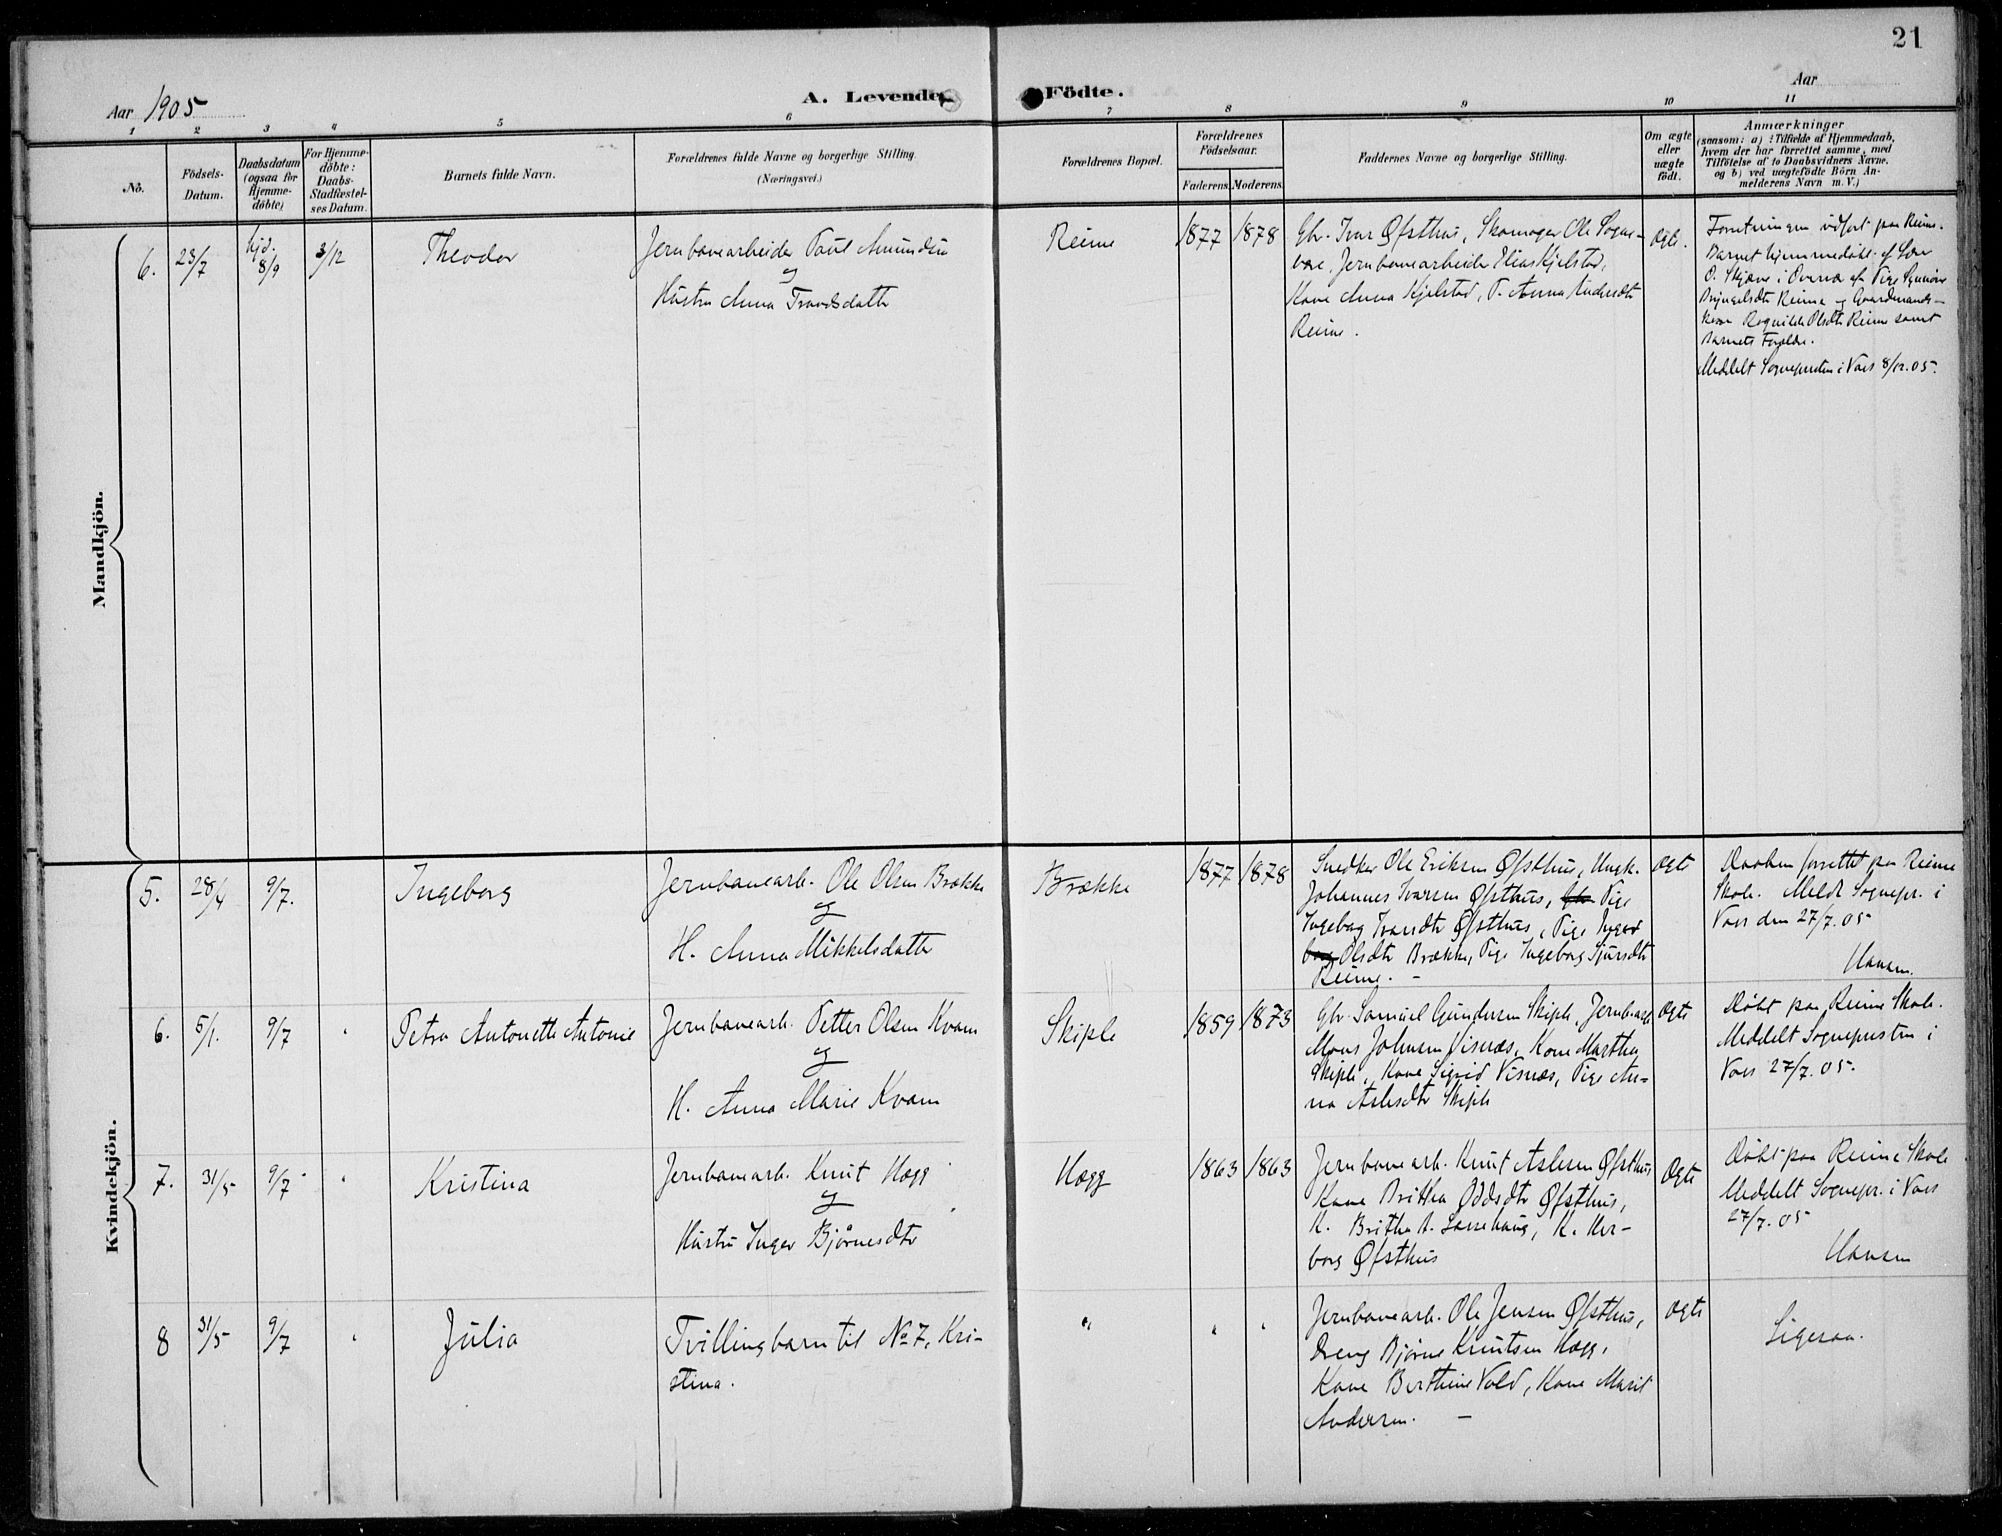 21
Aar 1905
A. Levende Födte.
Aar
1 2 3 4 5 6 7 8 9 10 11
No.
Födsels-Datum.
Daabsdatum (ogsaa for Hjemme-döbte)
For Hjemme-döbte: Daabs-Stadfæstel-ses Datum.
Barnets fulde Navn.
Forældrenes fulde Navne og borgerlige Stilling.
(Næringsvei.)
Forældrenes Bopæl.
Forældrenes Födselsaar.
Faderens. Moderens.
Faddernes Navne og borgerlige Stilling.
Om ægte eller uægte födt.
Anmærkninger
(saasom: a) i Tilfælde af Hjemmedaab,
hvem der har forrettet samme, med
Tilföielse af to Daabsvidners Navne,
og b) ved uægtefödte Börn An-
melderens Navn m. V.)
Mandkjön.
6. 23/7 hjd. 8/9 3/12 Theodor
Jernbanearbeider Paul Amundsen
og
Hustru Anna Trondsdatter
Reime
1877 1878
Gbr. Ivar Øfsthus, Skomager Ole Sogne-
, Jernbanearbeider Elias Kjelstad,
Kone Anna Kjelstad, P. Anna
Reime.
Ægte.
Forretningen udført paa Reime.
Barnet hjemmedøbt af
O. i af Pige
Reime og Gaardmands-
kone Reime samt
Barnets Forældre.
Meddelt Sognepresten i Voss 8/12.05.
Kvindekjön.
5. 28/4 9/7. Ingeborg
Jernbanearb. Ole Olsen Brække
og
H. Anna Mikkelsdatter
Brække
1877 1878
Snedker Ole Eriksen Øfsthus, Ungk.
Johannes Ivarsen Øfsthus, Pige
Ingeborg Ivarsdtr Øfsthus, Pige Inger
Olsdtr Brække, Pige Ingeborg Sjursdtr
Reime. –
Ægte
Daaben forrettet paa Reime
Skole. Meldt Sognepr. i
Voss den 27/7.05
Hansen.
6. 5/1. 9/7 " Petra Antonette Antonie
Jernbanearb. Petter Olsen Kvam
og
H. Anna Marie Kvam
Skiple
1859 1873
Gbr. Samuel Gundersen Skiple, Jernb.arb.
Mons Johnsen Visnæs, Kone Martha
Skiple, Kone Sigrid Visnæs, Pige An-
na Aslesdtr Skiple
Ægte
Døbt paa Reime Skole.
Meddelt Sognepresten i
Voss 27/7.05.
7. 31/5 9/7 " Kristina
Jernbanearb. Knut Hægg
og
Hustru Inger Bjørnesdtr
Hægg
1863 1863
Jernbanearb. Knut Aslesen Øfsthus
Kone Britha Oddsdtr Øfsthus,
K. Britha A. , K. Her-
borg Øfsthus
Ægte
Døbt paa Reime Skole
Meddelt Sognepr. i Voss
27/7.05
Hansen
8 31/5 9/7 " Julia
Tvillingbarn til No 7, Kri-
stina.
" " "
Jernbanearb. Ole Jensen Øfsthus,
Dreng Bjørne Knutsen Hægg,
Kone Berthine Vold, Kone Marit
Andersen. –
Ægte
Ligesaa.